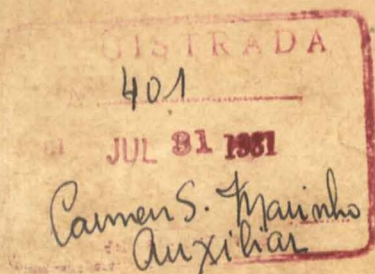 GISTRADA
401
JUL 31 1981
Carmen S. Marinho
Auxiliar